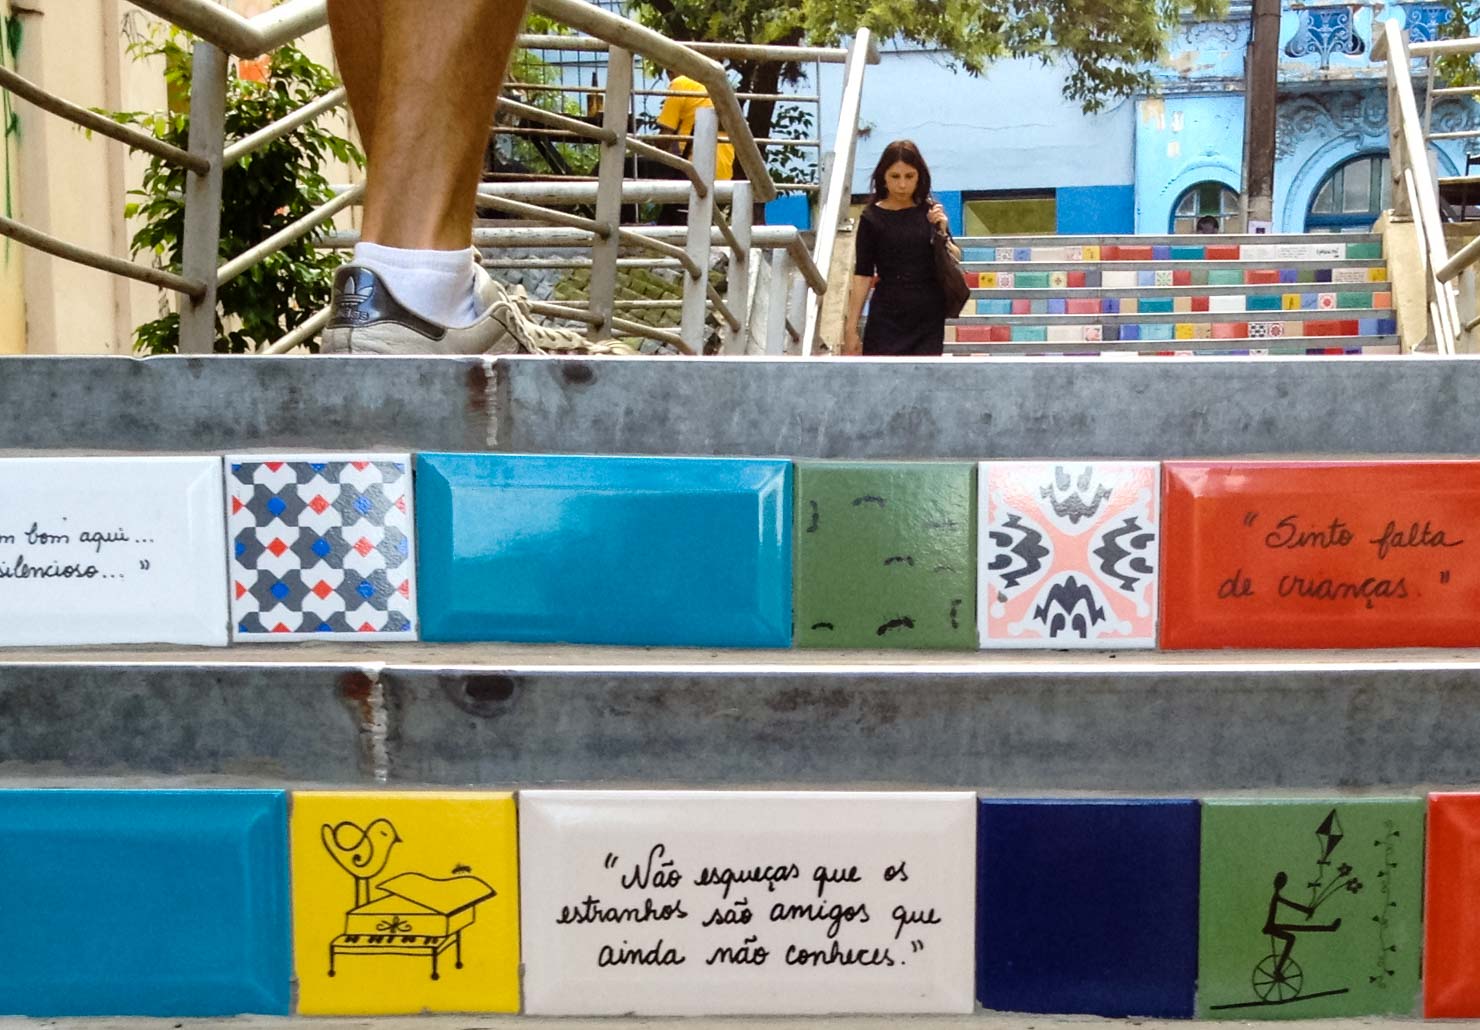 m bom aqui...
silencioso... "
" Sinto falta
de crianças. "
"Não esqueças que os
estranhos são amigos que
ainda não conheces."